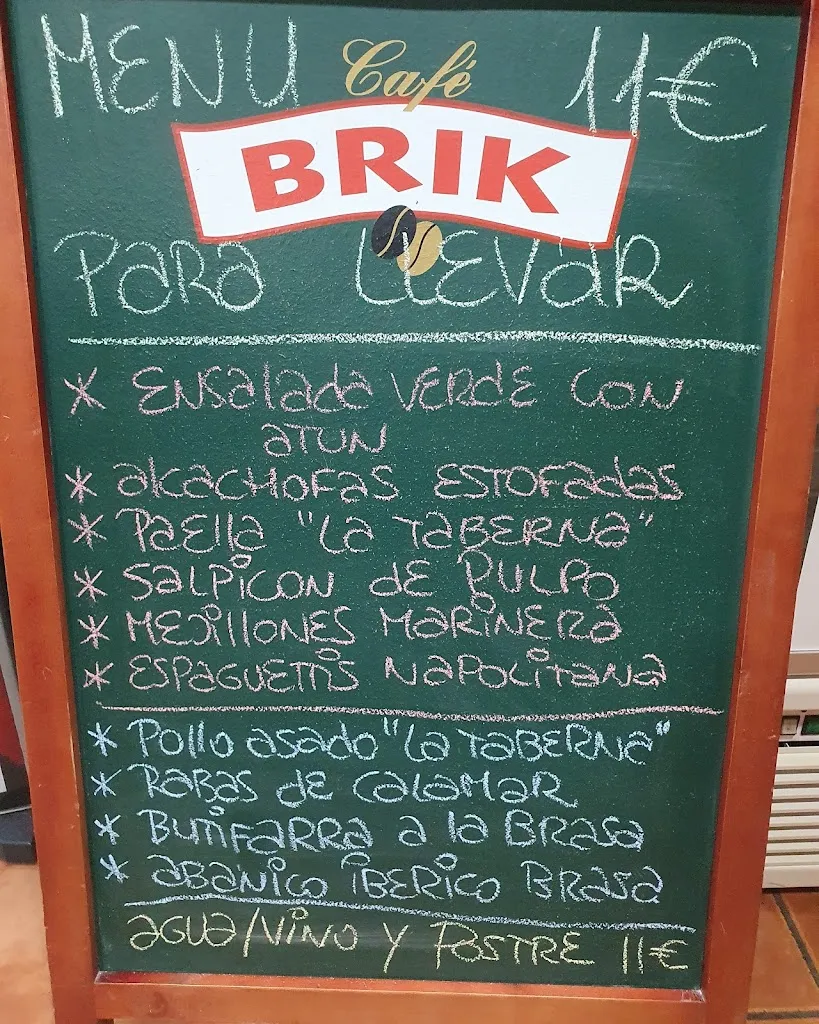 MENU 11€
Café
BRIK
PARA LLEVAR
* ENSALADA VERDE CON
ATUN
* ALCACHOFAS ESTOFADAS
* PAELLA "LA TABERNA"
* SALPICON DE PULPO
* MEJILLONES MARINERA
* ESPAGUETTIS NAPOLITANA
* POLLO ASADO "LA TABERNA"
* RABAS DE CALAMAR
* BUTIFARRA A LA BRASA
* ABANICO IBERICO BRASA
AGUA/VINO Y POSTRE 11€